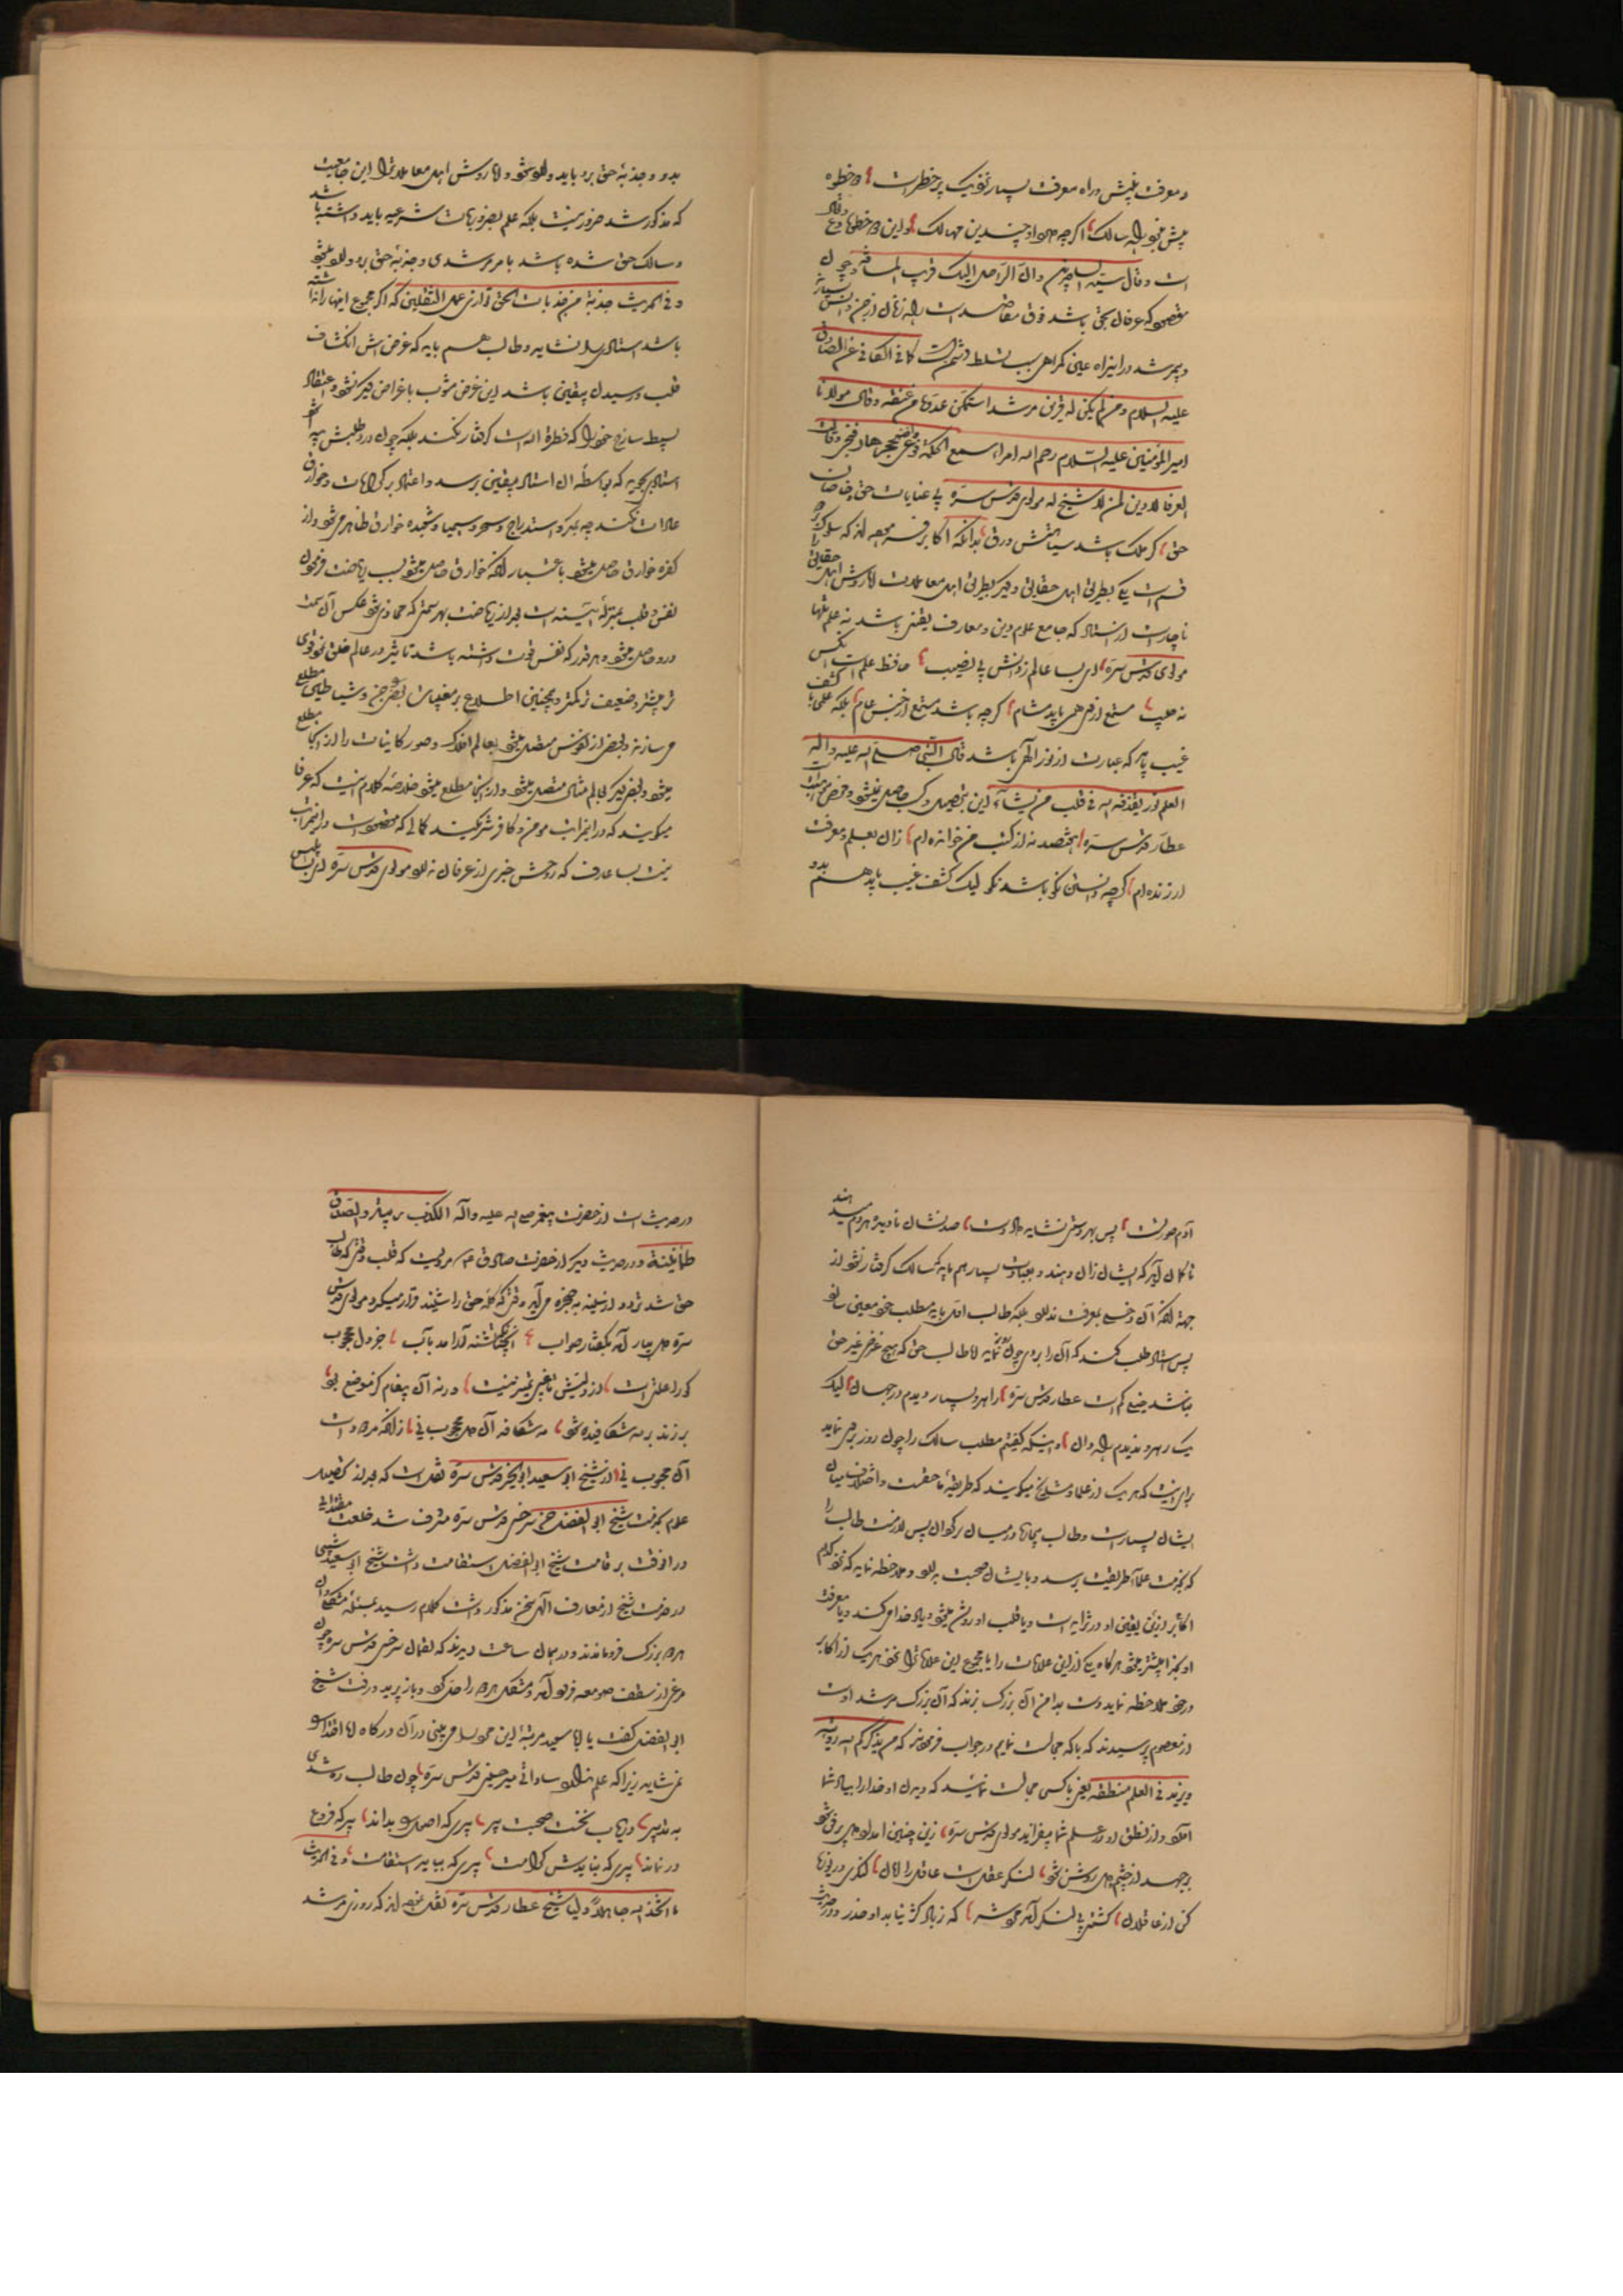 و معرفت پیش در راه معرفت بسیار نزدیک پر خطر است
پیش نبود راه سالک اگر چه چندین مهالک و این دو خطوه
است و قال سید الساجدین و ان الراحل الیک قریب المسافة و چون
مقصود که عرفان حق باشد فوق مقاصد است راه زنان از جن و انس بسیار
و بی مرشد در این راه عین گمراهی سبب تسلط دشمن است کما فی الکافی عن الصادق
علیه السلام و من لم یکن له قرین مرشد استمکن عدوه من عنقه و قال مولانا
امیر المؤمنین علیه السلام رحم الله امراء سمع الحکمة فوعی هاد فنجی و قالت
العرفا لا دین لمن لا شیخ له مولوی قدس سره بی عنایات حق و خاصان
حق گر ملک باشد سیاهستش ورق بدانکه اکابر فرموده اند که سلوک
قسم است یکی بطریق اهل حقایق و دیگر بطریق اهل معاملات اما روش اهل حقایق
ناچار است از استاد که جامع علوم دین و معارف یقینی باشد نه علم تنها
مولوی قدس سره ای بسا عالم ز دانش بی نصیب حافظ علم است آنکس
نه حبیب مستمع از وی همی یابد مشام گرچه باشد مستمع از جنس عام بلکه علمی با کشف
غیب باید که عبارت از نور الهی باشد قال النبی صلی الله علیه و آله
العلم نور یقذفه الله فی قلب من یشاء این بتحصیل و کسب حاصل نمیشود
عطار قدس سره هفتصد نه از کتب من خوانده ام زان بعلم و معرفت
ارزنده ام گرچه دانستن نکو باشد نکو لیک کشف غیب باید هم بدو
بدو و جذبهٔ حق برو باید و اما روش اهل معاملات را این جامعیت
که مذکور شد ضرور نیست بلکه علم بضروریات شرعیه باید داشته باشد
و سالک حق شده باشد بامر مرشدی و جذبهٔ حق برو
و فی الحدیث جذبة من جذبات الحق توازی عمل الثقلین که اگر مجموع اینها را نداشته
باشد استادی را نشاید و طالب هم باید که غرضش انکشاف
قلب و رسیدن بیقین باشد این غرض مشوب باغراض دیگر نشود و اعتقاد
بسیط ساذج خود را که فطرة الله است گرفتار نکند بلکه چون درد طلبش پیدا شود
استادی بجوید که بواسطهٔ آن استاد بیقین برسد و اعتماد بر کرامات و خوارق
عادات نکند چه بمکر و استدراج و سحر و سیمیا و شعبده خوارق ظاهر میشود و از
کفره خوارق حاصل میشود باعتبار آنکه خوارق حاصل میشود بسبب ریاضت
نفس و قلب بمنزلهٔ آئینه است بعد از ریاضت بهر سمتی که محاذی شود عکس آن سمت
درو حاصل میشود و هر قدر که نفس قوت داشته باشد تاثیر در عالم خلق نحو قوی
تر بیشتر و ضعیف تر کمتر و همچنین اطلاع بر مغیبات بعضی جن و شیاطین مطلع
می سازند و بعضی از نفوس متصل میشود بعالم افلاک و صور کاینات را از آنجا مطلع
میشود و بعضی دیگر بعالم مثال متصل میشود و از اینجا مطلع میشود خلاصهٔ کلام اینست که عرفا
میگویند که در این مراتب مومن و کافر شریکند کمالی که مقصود است در این مراتب
نیست بسا عارف که روحش خبری از عرفان ندارد مولوی قدس سره ای بسا ابلیس
آدم صورت است پس بهر دستی نشاید داد دست صد نشان نادیده هر دم میدهند
تا گمان آید که ایشان زان دهند و عبادت بسیار هم باید که سالک گرفتار نشود از
جهة آنکه آن دخلی بمعرفت ندارد بلکه طالب اول باید مطلب خود معین سازد
پس استاد طلب کند که آن را بدو نماید اما طالب حق که هیچ غرض غیر حق
نباشد خیلی کم است عطار قدس سره راهرو بسیار دیدم در جهان لیک
یک رهرو ندیدم راه دان و اینکه گفتم مطلب سالک را چون روز برو می نماید
برای اینست که هر یک از علما و مشایخ میگویند که طریقهٔ ما حقست و اختلاف میان
ایشان بسیار است و طالب بیچاره در میان سرگردان پس لازمست طالب را
که بخدمت علماء طریقت برسد و با ایشان صحبت بدارد و ملاحظه نماید که نفس کدام
اکابر از این یقین او در تزاید است و یا قلب او روشن میشود و یاد خدا می کند و یا معرفت
او بخدا بیشتر میشود هرگاه یکی از این علامات را یا مجموع این علامات را از نفس هر یک از اکابر
در خود ملاحظه نماید دست بدامن آن بزرگ بزند که آن بزرگ مرشد اوست
از معصوم پرسیدند که با که مجالست نمایم در جواب فرمودند که من یذکرکم الله رؤیته
و یزید فی العلم منطقه یعنی با کسی مجالست نمائید که دیدن او خدا را بیاد شما
آورد و از نطق او در علم شما بیفزاید مولوی قدس سره زین چنین امداد دل پر فن شود
بر جهد از چشم دل روشن شود لنگر عقل است عاقل را امان لنگری دریوزه
کن از عاقلان کشتی بی لنگر آمد مرد شر که ز باد کژ نیابد او حذر و در حدیث
در حدیث است از حضرت پیغمبر صلی الله علیه و آله الکذب ریبة و الصدق
طمأنینة و در حدیث دیگر از حضرت صادق ع مرویست که قلب وقتی که طالب
حق شد تردد از سینه به حنجره می آید وقتی که کلمهٔ حق را شنید قرار میگیرد مولوی قدس
سره دل بیارامد بگفتار صواب آنچنانکه تشنه آرامد بآب جز دل محجوب
کو را علتی است از ولیش تا غبی تمییز نیست ورنه آن پیغام کز موضع بود
بر زند بر مه شکافیده شود مه شکافد آن دل محجوب نی زانکه مردود است
آن محبوب نی از شیخ ابو سعید ابو الخیر قدس سره نقل است که بعد از تحصیل
علوم بخدمت شیخ ابو الفضل سرخسی قدس سره مشرف شد خلعت مقتدائی
در آنوقت بر قامت شیخ ابو الفضل استقامت داشت شیخ ابو سعید شبی
در خدمت شیخ از معارف الهی سخن مذکور داشت کلام رسید بمسئله مشکله
هر دو بزرگ فرو ماندند و در همان ساعت دیدند که لقمان سرخسی قدس سره چون
مرغی از سقف صومعه فرود آمد و مشکل هر دو را حل کرد و باز پرید و رفت شیخ
ابو الفضل گفت یا ابا سعید مرتبهٔ این مرد را می بینی در آن درگاه اما اقتدا را
نمی شاید زیرا که علم ندارد ساداتی میر حسینی قدس سره چون طالب ره شدی
به تدبیر دریاب نخست صحبت پیر پیری که اصول بداند پیر که فروع
در نماند پیری که نبایدش کرامت پیری که ببایدش استقامت و فی الحدیث
ما اتخذ الله جاهلا ولیا شیخ عطار قدس سره نقل نموده اند که روزی مرشد